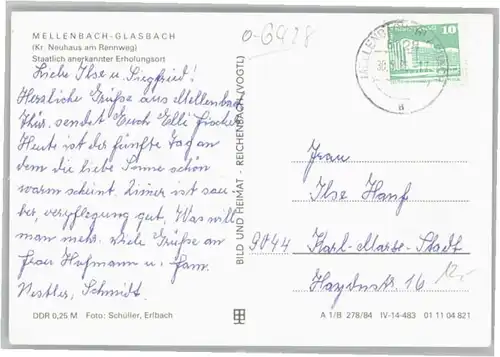 MELLENBACH-GLASBACH
(Kr. Neuhaus am Rennweg)
Staatlich anerkannter Erholungsort
o-6428
10
Liebe Ilse u. Siegfried!
Herzliche Grüße aus Mellenbach
Thür. sendet Euch Elli Fischer
Heute ist der fünfte Tag an
dem die liebe Sonne schön
warm scheint. Zimer ist sau
ber, verpflegung gut. Was will
man mehr. Viele Grüße an
Frau Hofmann u. Fam.
Nestler, Schmidt.
BILD UND HEIMAT - REICHENBACH (VOGTL)
Frau
Ilse Hanf
9044 Karl-Marx-Stadt
Haydnstr. 16
12,-
DDR 0,25 M Foto: Schüller, Erlbach
A 1/B 278/84 IV-14-483 01 11 04 821